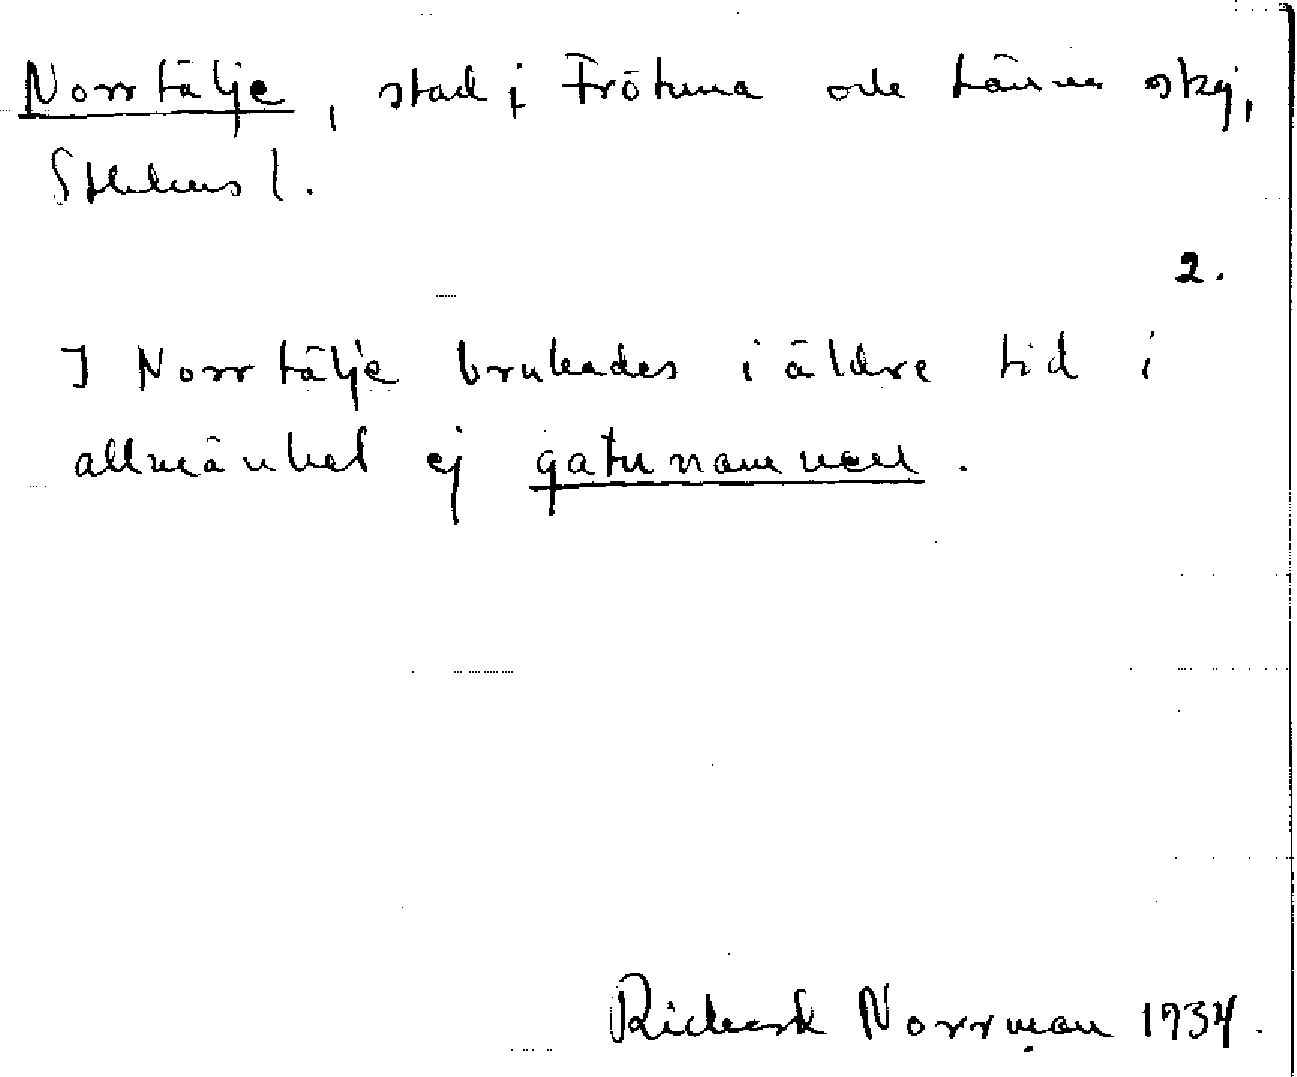 Norrtälje, stad i Frötuna och Länna skg,
Sthlms l.
2.
I Norrtälje brukades i äldre tid i
allmänhet ej gatunamnen.
Rickard Norrman 1934.